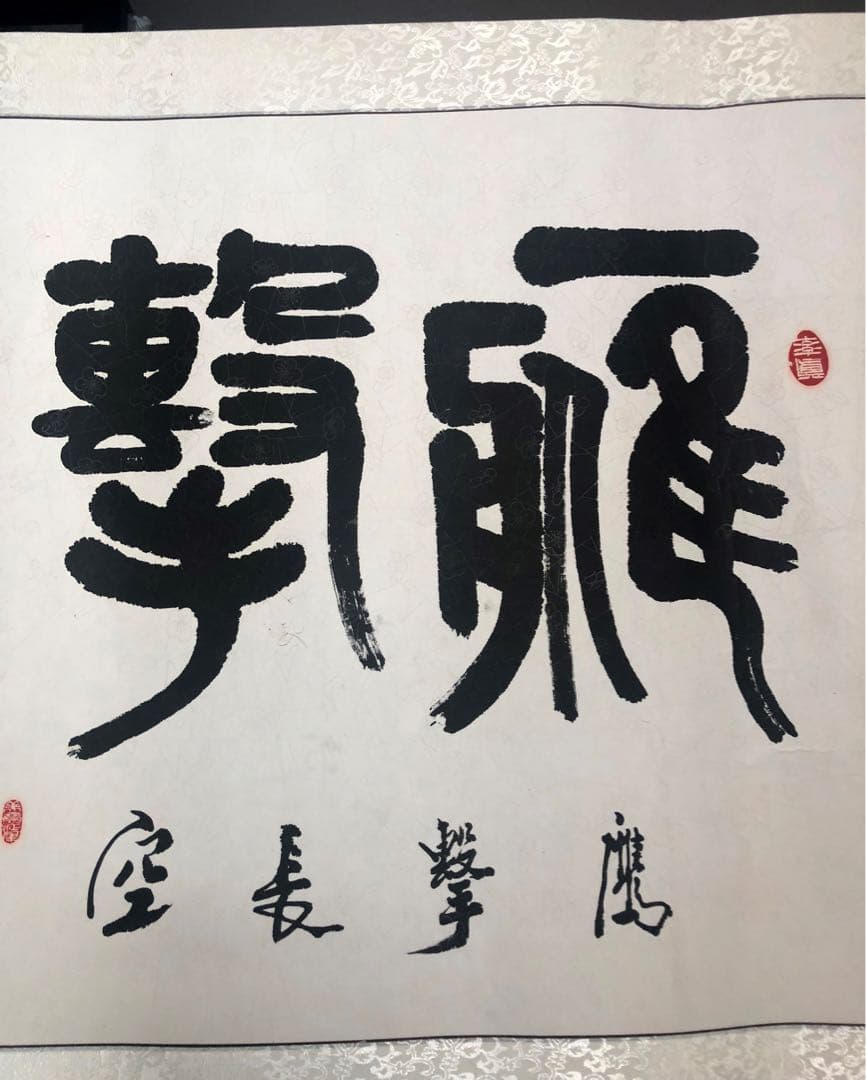 鷹擊
鷹擊長空